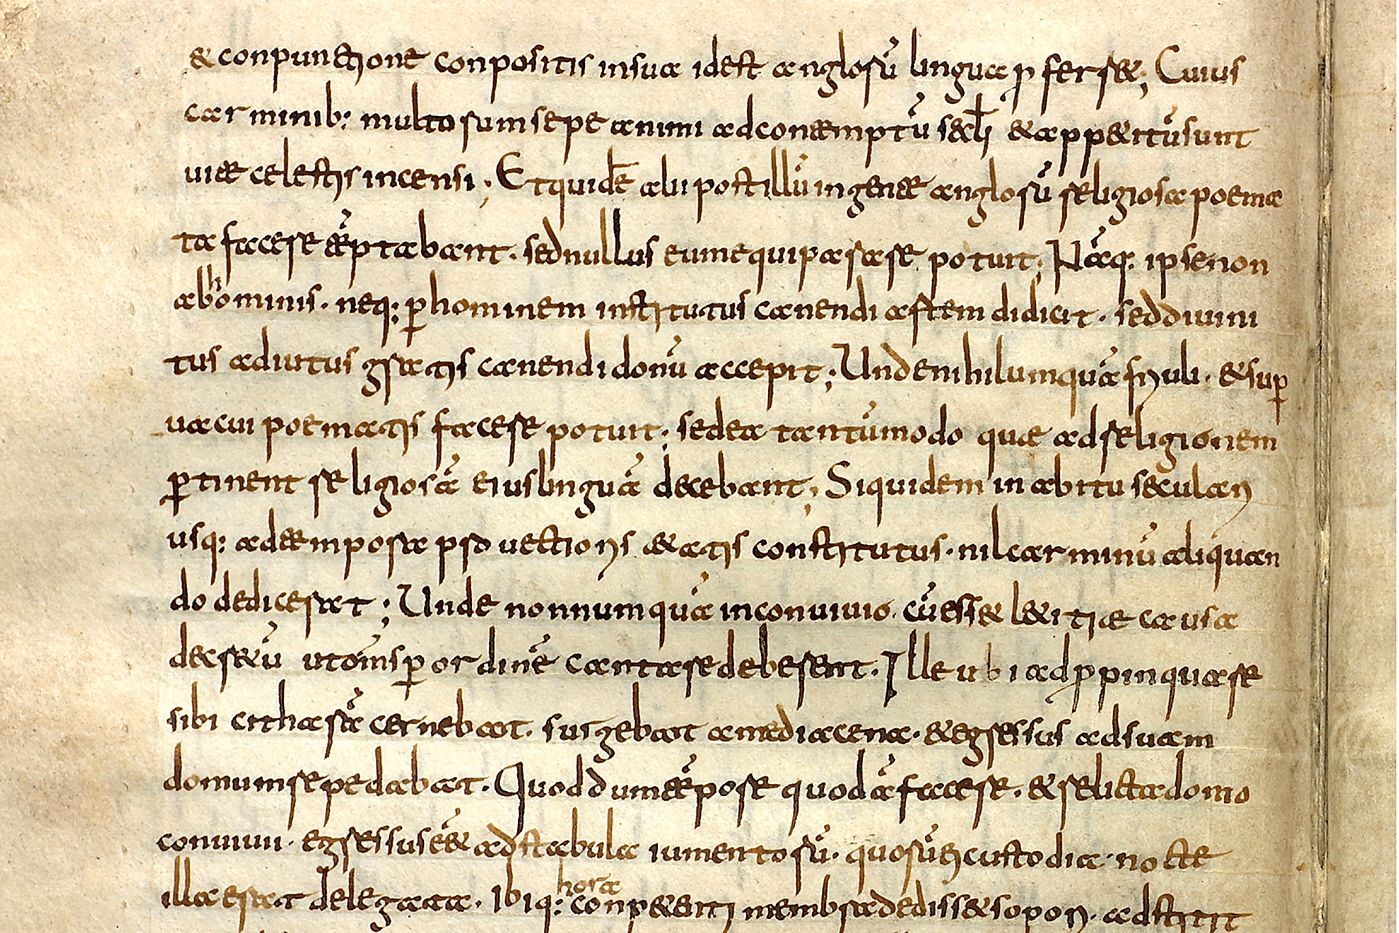 & conpunctione conpositis insua id est anglorū lingua p ferret; Cuius
carminib: multorum sepe animi ad contemptū sæcli & appetitū sunt
uitae celestis incensi; Et quidē alii post illū in gente anglorū religiosa poema
ta facere tēptabant · sed nullus eum equiparare potuit; Nāq: ipse non
ab hominis · neq: p hominem institutus canendi artem didicit · sed diuini
tus adiutus gratis canendi donū accepit; Unde nihil umquā friuoli · & sup
uacui poematis facere potuit; sed ea tantūmodo quae ad religionem
ptinent religiosā eius linguā decebant; Siquidem in abitu seculari
usq: ad tempora pfectioris aetatis constitutus · nil carminū aliquan
do dedicerat; Unde nonnumquā in conuiuio · cū esset laetitiae causa
decretū ut om̄s p ordinē cantare deberent · Ille ubi adppinquare
sibi citharā cernebat · surgebat a media cena · & egressus ad suam
domum sepe dabat · Quod dum tēpore quodā faceret · & relicta domo
conuiuii · egressus ēet ad stabula iumentorū · quorū ei custodia · nocte
illa erat delegata · Ibiq: hora conpetenti membra dedisset sopori · adstitit